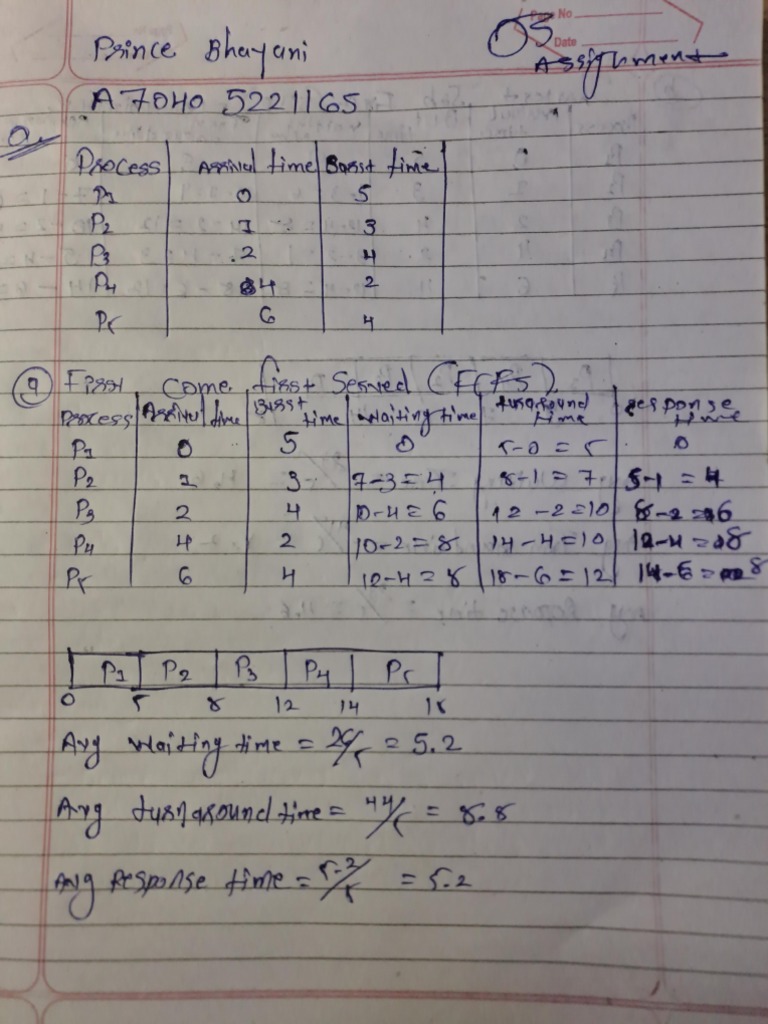 Page No
Date
OS
Assignment
Prince Bhayani
A7040 5221165
Q.
Process Arrival time Burst time
P1 0 5
P2 1 3
P3 2 4
P4 4 2
P5 6 4
① First come first Served (FCFS)
Process Arrival time Burst time waiting time turnaround time response time
P1 0 5 0 5-0 = 5 0
P2 1 3 7-3 = 4 8-1 = 7 5-1 = 4
P3 2 4 10-4 = 6 12-2 = 10 8-2 = 6
P4 4 2 10-2 = 8 14-4 = 10 12-4 = 8
P5 6 4 12-4 = 8 18-6 = 12 14-6 = 8
P1 P2 P3 P4 P5
0 5 8 12 14 18
Avg waiting time = 26/5 = 5.2
Avg turnaround time = 44/5 = 8.8
Avg Response time = 5.2/5 = 5.2